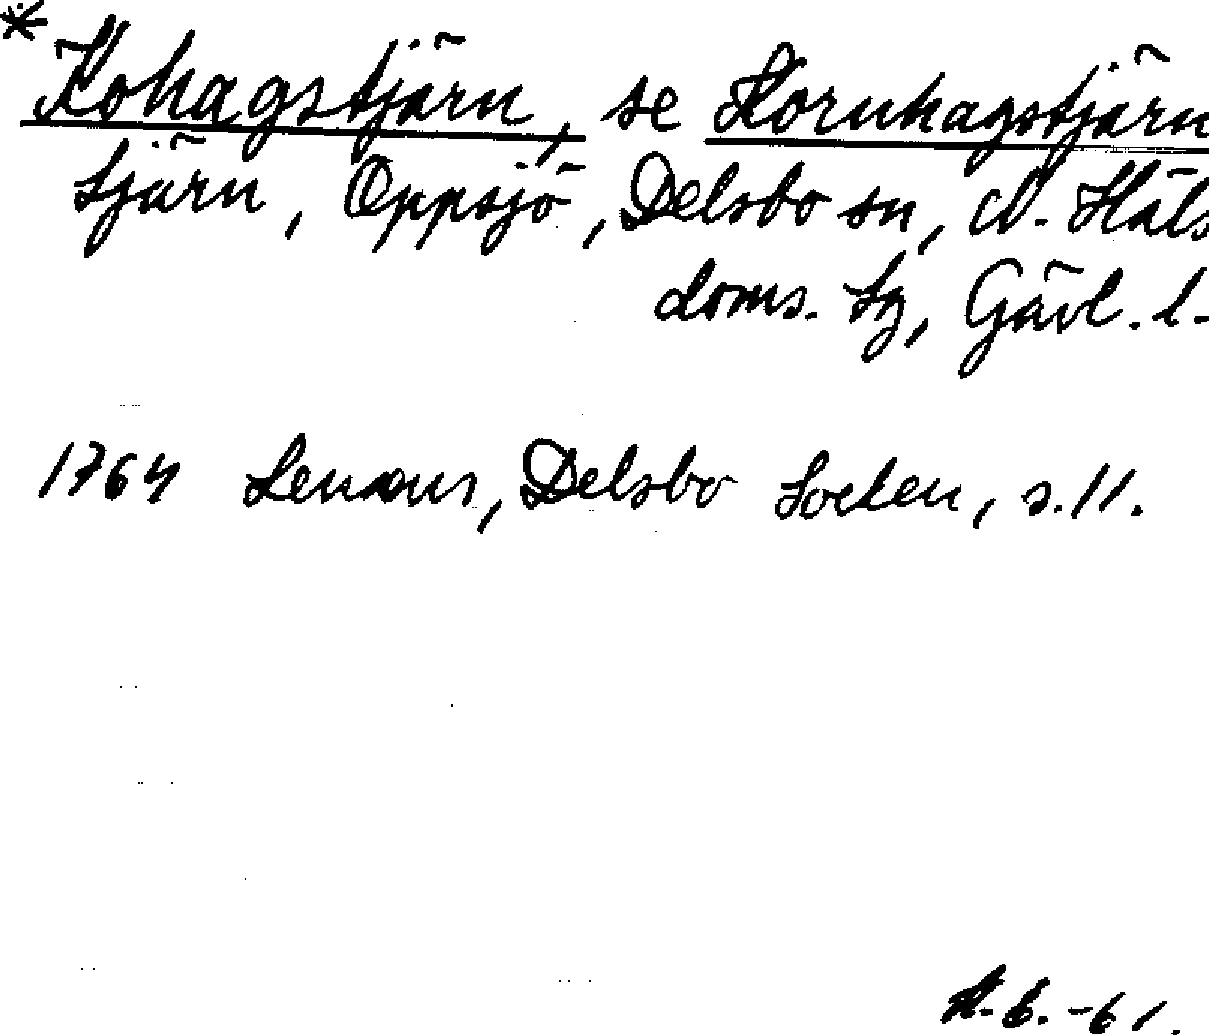 * Kohagstjärn, se Kornhagstjärn
tjärn, Oppsjö, Delsbo sn, N. Häls
doms. tg, Gävl. l.
1764 Lenæus, Delsbo Socken, s. 11.
-61.